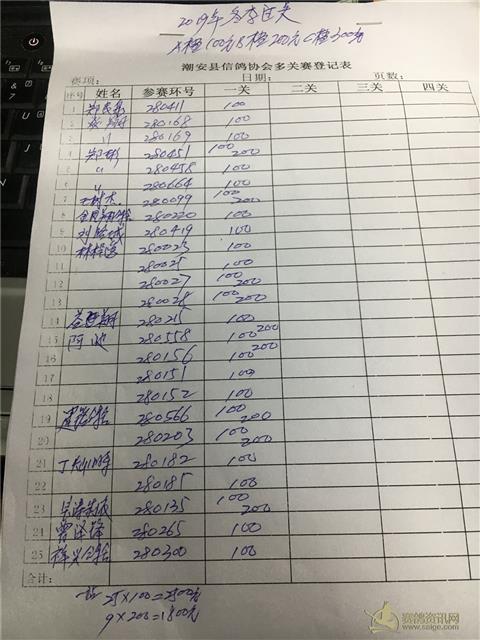 2019年冬季四关
A档100元B档200元C档300元
潮安县信鸽协会多关赛登记表
赛项： 日期： 页数：
序号 姓名 参赛环号 一关 二关 三关 四关
1 280411 100
2 280168 100
3 〃 280169 100
4 郑彬 280451 100 200
5 〃 280458 100
6 〃 280664 100
7 280099 100 200
8 280220 100
9 280419 100
10 280023 100
11 280025 100
12 280027 100 200
13 280028 100 200
14 280215 100
15 阿 280558 100 200
16 280156 100 200
17 280151 100
18 280152 100
19 280566 100 200
20 280203 100 200
21 280182 100
22 280185 100
23 280135 100 200
24 曾泽锋 280265 100
25 280300 100
合计：
25×100=2500元
9×200=1800元
赛鸽资讯网
www.saige.com